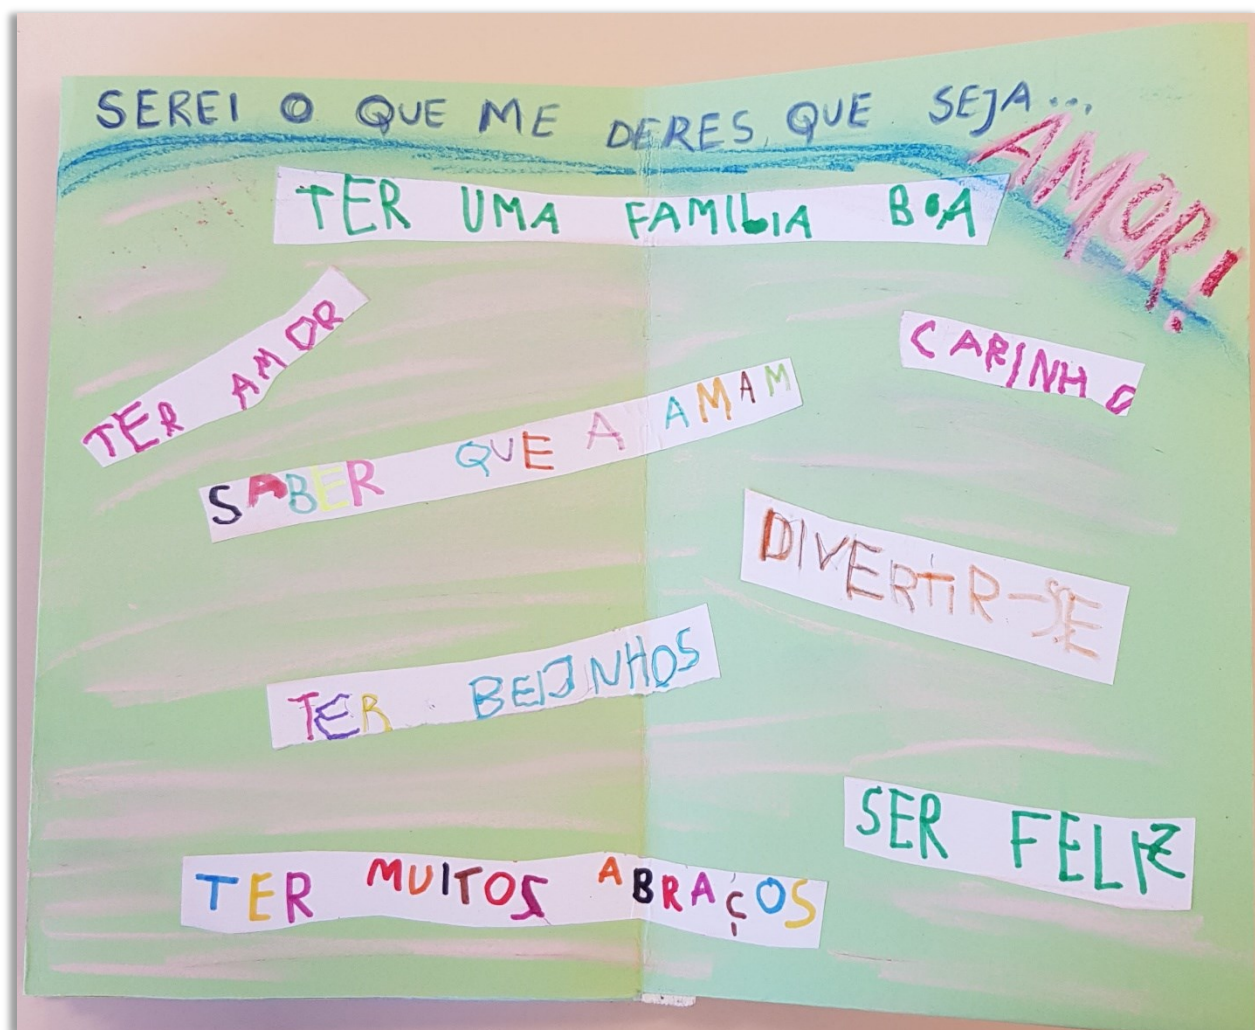 SEREI O QUE ME DERES QUE SEJA...
AMOR!
TER UMA FAMILIA BOA
TER AMOR
CARINHO
SABER QUE A AMAM
DIVERTIR-SE
TER BEIJNHOS
SER FELIZ
TER MUITOS ABRAÇOS